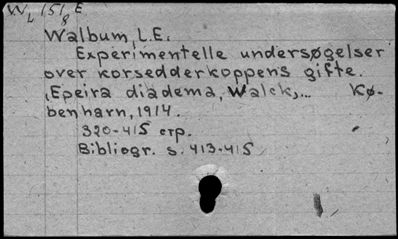 WL 151/8 E
Walbum, L.E.
Experimentelle undersøgelser
over korsedderkoppens gifte.
(Epeira diadema, Walck,... Kø-
benharn, 1914.
320-415 crp.
Bibliogr. s. 413-415